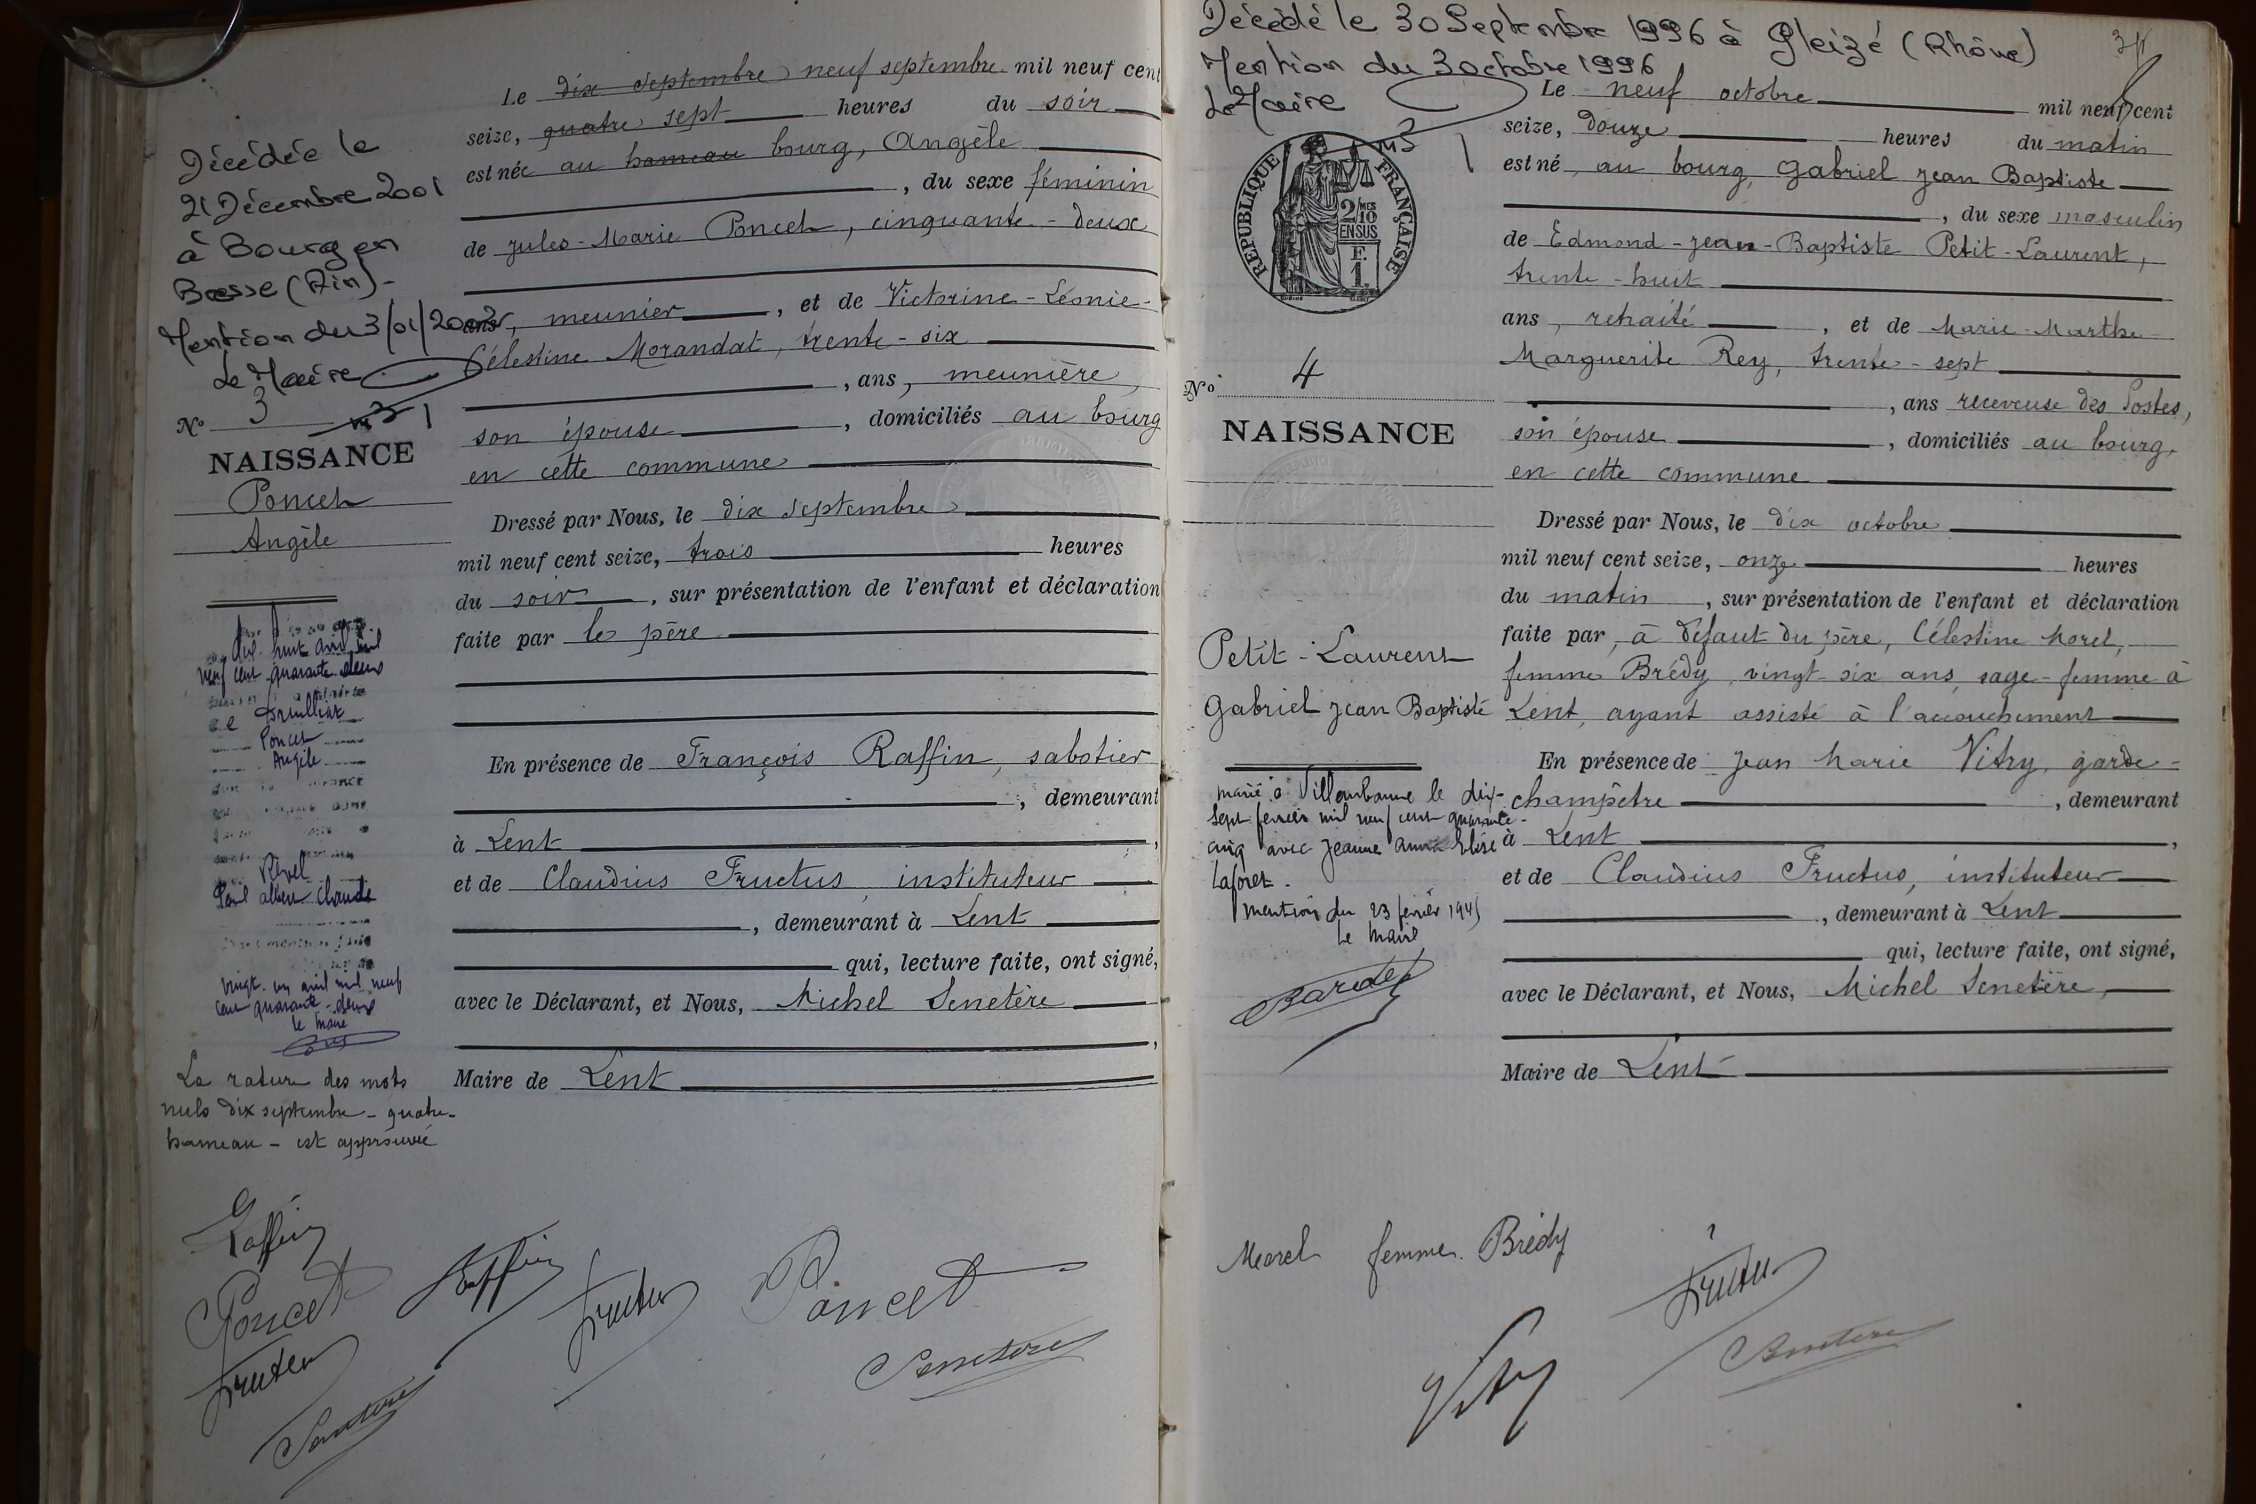 Le dix septembre neuf septembre mil neuf cent
seize, quatre sept heures du soir
est née au hameau bourg, Angèle
, du sexe féminin
de Jules-Marie Poncet, cinquante-deux
ans, meunier, et de Victorine-Léonie-
Célestine Morandat, trente-six
, ans, meunière,
son épouse, domiciliés au bourg
en cette commune
Dressé par Nous, le dix septembre
mil neuf cent seize, trois heures
du soir, sur présentation de l'enfant et déclaration
faite par le père
En présence de François Raffin, sabotier
, demeurant
à Lent,
et de Claudius Fructus, instituteur
, demeurant à Lent
qui, lecture faite, ont signé,
avec le Déclarant, et Nous, Michel Senetère
,
Maire de Lent
Décédée le
21 Décembre 2001
à Bourg en
Bresse (Ain)-
Mention du 3/01/2002
Le Maire
No 3
NAISSANCE
Poncet
Angèle
dix-huit avril mil
neuf cent quarante-deux
Poncet
Angèle
Rével
Paul Albert Claude
vingt-un avril mil neuf
cent quarante-deux
le maire
La rature des mots
nuls dix septembre - quatre-
hameau - est approuvée
Raffin
Poncet
Fructus
Senetère
Raffin
Fructus
Poncet
Senetère
Décédé le 30 Septembre 1996 à Gleizé (Rhône)
Mention du 3 octobre 1996
Le Maire
Le neuf octobre mil neuf cent
seize, douze heures du matin
est né, au bourg, Gabriel Jean Baptiste
, du sexe masculin
de Edmond-Jean-Baptiste Petit-Laurent,
trente-huit
ans, retraité, et de Marie-Marthe-
Marguerite Rey, trente-sept
, ans receveuse des Postes,
son épouse, domiciliés au bourg,
en cette commune
Dressé par Nous, le dix octobre
mil neuf cent seize, onze heures
du matin, sur présentation de l'enfant et déclaration
faite par, à défaut du père, Célestine Morel,
femme Brédy, vingt-six ans, sage-femme à
Lent, ayant assisté à l'accouchement
En présence de Jean Marie Vitry, garde-
champêtre, demeurant
à Lent,
et de Claudius Fructus, instituteur
, demeurant à Lent
qui, lecture faite, ont signé,
avec le Déclarant, et Nous, Michel Senetère,
Maire de Lent
RÉPUBLIQUE FRANÇAISE
2/MES
10
EN SUS
F.
1.
No 4
NAISSANCE
Petit-Laurent
Gabriel Jean Baptiste
marié à Villeurbanne le dix-
sept février mil neuf cent quarante-
cinq avec Jeanne Anna Elise
Laforet.
Mention du 23 février 1945
Le Maire
Morel femme Brédy
Fructus
Vitry
Senetère